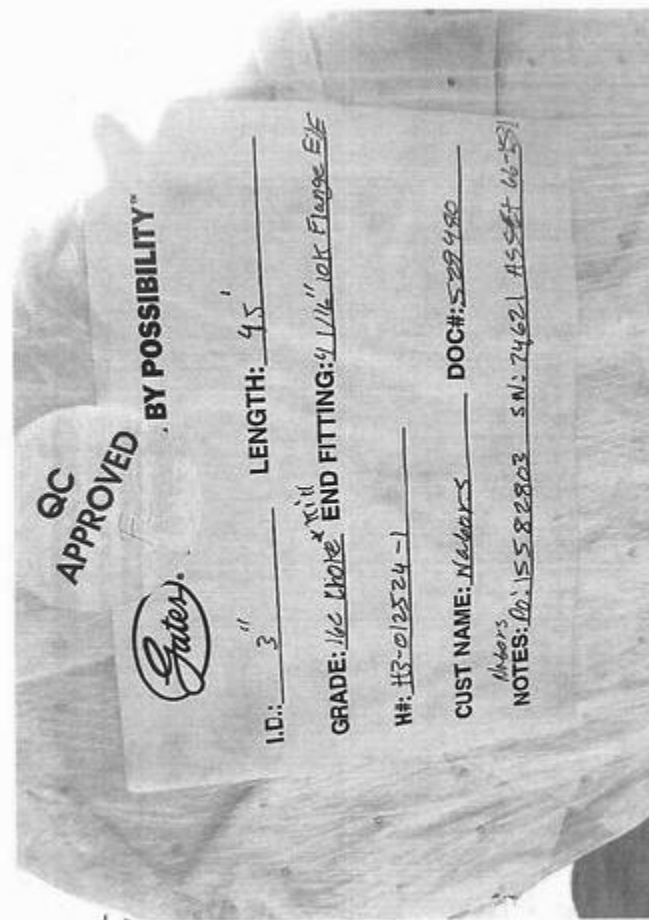 QC
APPROVED
Gates. BY POSSIBILITY™
I.D.: 3" LENGTH: 45'
GRADE: 16C Choke & Kill END FITTING: 4 1/16" 10K Flange E/E
H#: H3-012524-1
CUST NAME: Nabors DOC#: 529480
Nabors
NOTES: Pn: 15582803 SN: 74621 ASSET 66-581